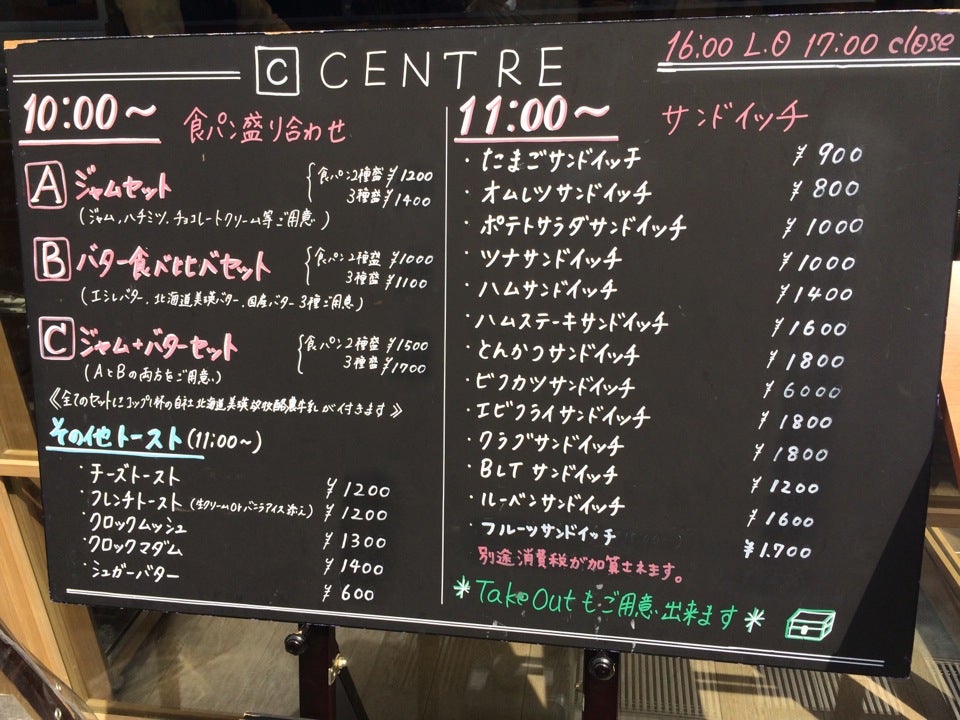 C CENTRE
16:00 L.O 17:00 close
10:00～ 食パン盛り合わせ
A ジャムセット
食パン2種盛 ¥1200
3種盛 ¥1400
(ジャム、ハチミツ、チョコレートクリーム等ご用意)
B バター食べ比べセット
食パン2種盛 ¥1000
3種盛 ¥1100
(エシレバター、北海道美瑛バター、国産バター 3種ご用意)
C ジャム+バターセット
食パン2種盛 ¥1500
3種盛 ¥1700
(AとBの両方をご用意)
《全てのセットにコップ1杯の自社北海道美瑛放牧酪農牛乳が付きます》
その他トースト(11:00～)
・チーズトースト ¥1200
・フレンチトースト (生クリームorバニラアイス添え) ¥1200
・クロックムッシュ ¥1300
・クロックマダム ¥1400
・シュガーバター ¥600
11:00～ サンドイッチ
・たまごサンドイッチ ¥900
・オムレツサンドイッチ ¥800
・ポテトサラダサンドイッチ ¥1000
・ツナサンドイッチ ¥1000
・ハムサンドイッチ ¥1400
・ハムステーキサンドイッチ ¥1600
・とんかつサンドイッチ ¥1800
・ビフカツサンドイッチ ¥6000
・エビフライサンドイッチ ¥1800
・クラブサンドイッチ ¥1800
・BLTサンドイッチ ¥1200
・ルーベンサンドイッチ ¥1600
・フルーツサンドイッチ ¥1.700
別途消費税が加算されます。
＊Take Outもご用意出来ます＊